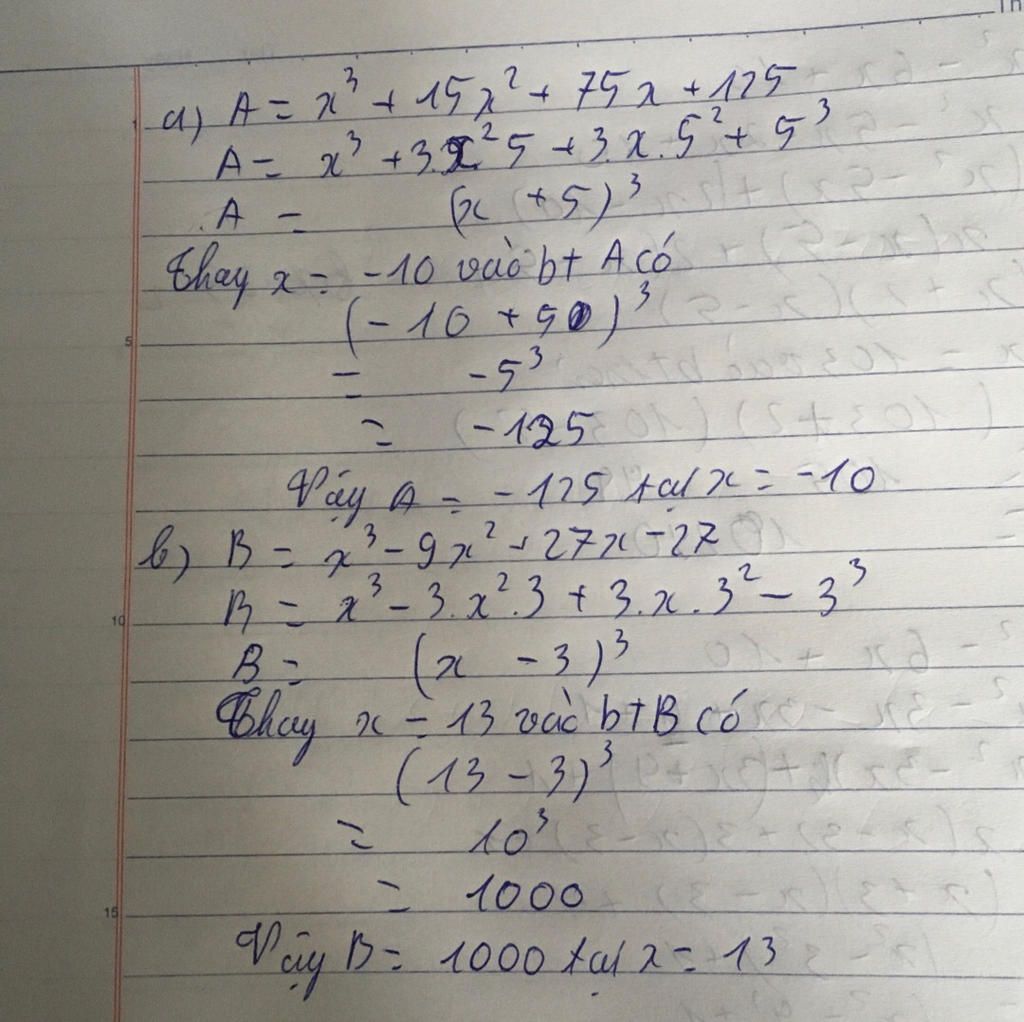 a) A = x³ + 15x² + 75x + 125
A = x³ + 3.x² 5 + 3.x.5² + 5³
A = (x + 5)³
Thay x = -10 vào bt A có
(-10 + 5)³
= -5³
= -125
Vậy A = -125 tại x = -10
b) B = x³ - 9x² + 27x - 27
B = x³ - 3.x².3 + 3.x.3² - 3³
B = (x - 3)³
Thay x = 13 vào bt B có
(13 - 3)³
= 10³
= 1000
Vậy B = 1000 tại x = 13
5
10
15